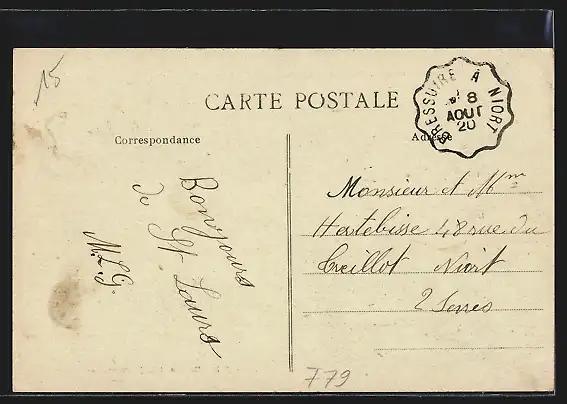 15
CARTE POSTALE
BRESSUIRE À NIORT
8
AOUT
20
Correspondance
Adresse
Bonjours
de St. Laurs
M.L.G.
Monsieur et Mme
Hertebisse 48 rue du
Creillot Niort
2 Sevres
779